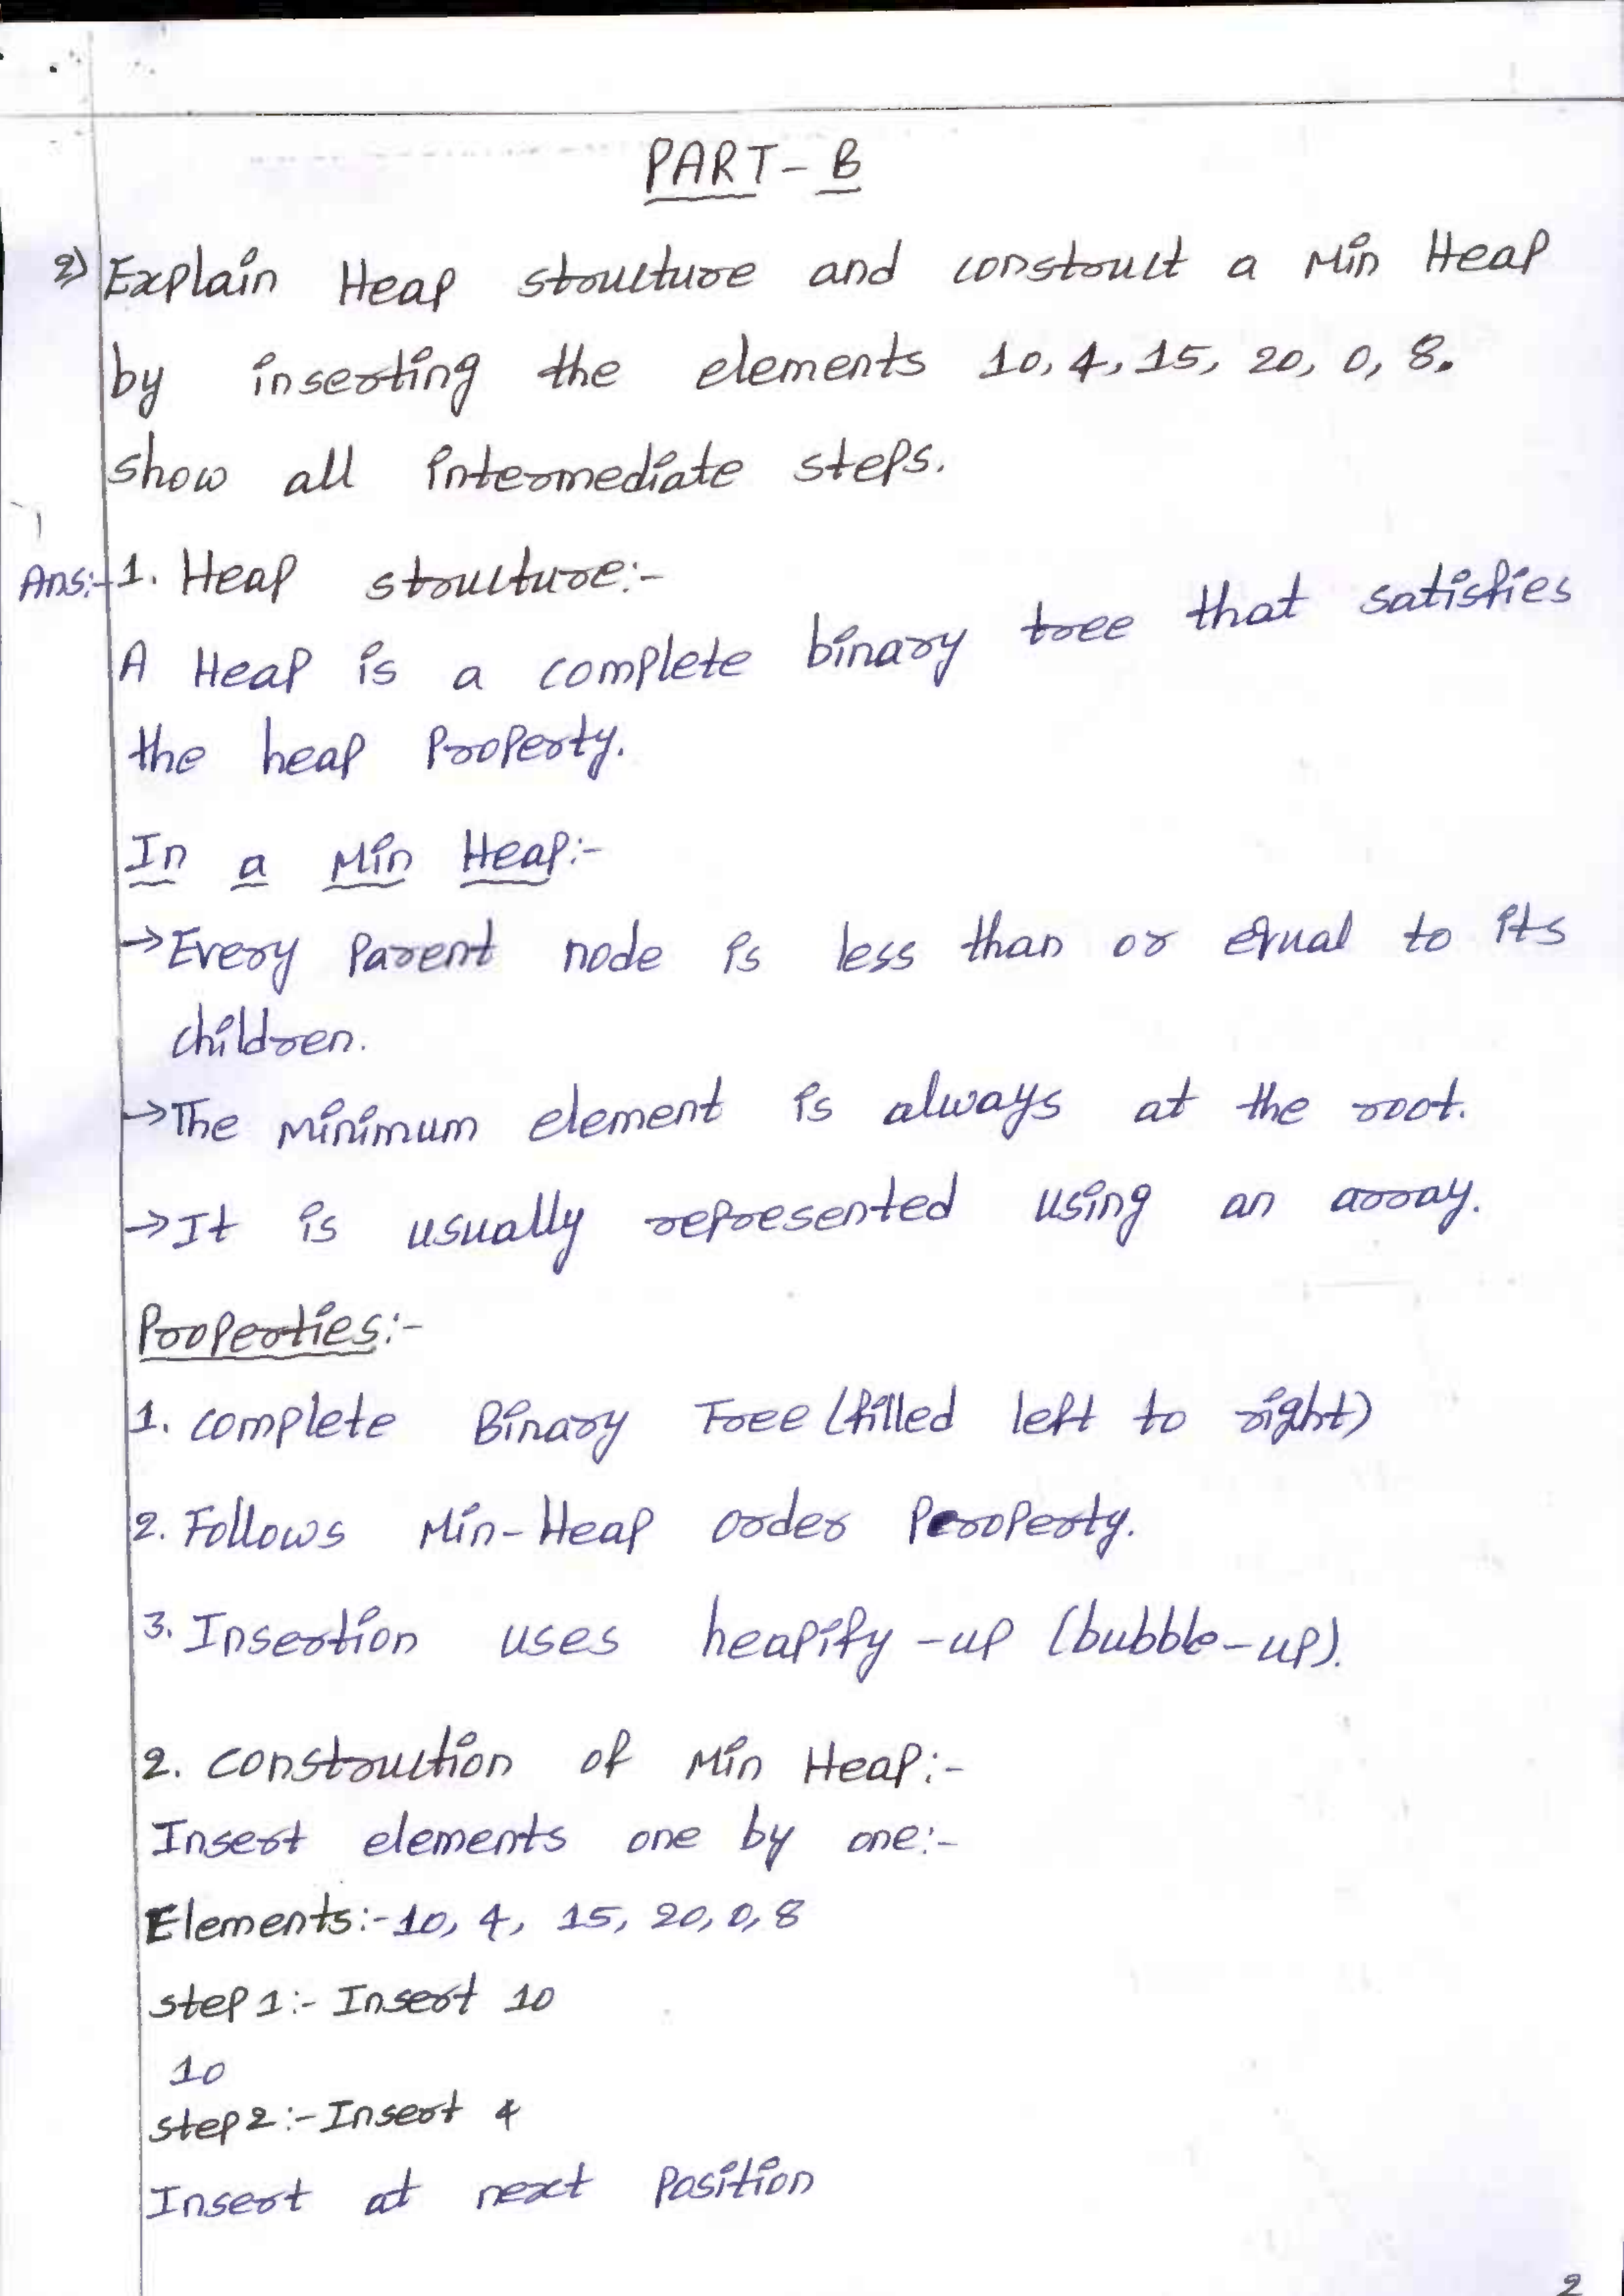 PART-B
2) Explain Heap structure and construct a Min Heap
by inserting the elements 10, 4, 15, 20, 0, 8.
show all intermediate steps.
Ans:- 1. Heap structure:-
A Heap is a complete binary tree that satisfies
the heap Property.
In a Min Heap:-
→Every Parent node is less than or equal to its
children.
→The minimum element is always at the root.
→It is usually represented using an array.
Properties:-
1. complete Binary Tree (filled left to right)
2. Follows Min-Heap order Property.
3. Insertion uses heapify-up (bubble-up).
2. construction of Min Heap:-
Insert elements one by one:-
Elements:-10, 4, 15, 20, 0, 8
step 1:- Insert 10
10
step 2:- Insert 4
Insert at next Position
2